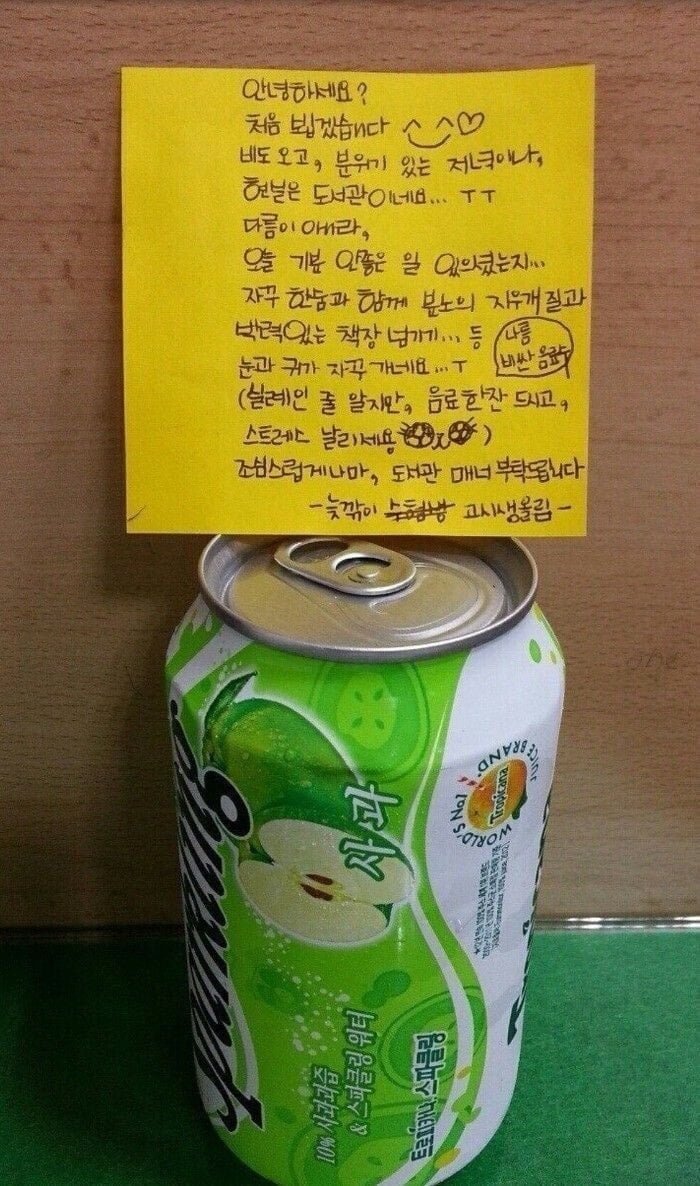 안녕하세요?
처음 뵙겠습니다 ^‿^♡
비도 오고, 분위기 있는 저녁이나,
현실은 도서관이네요... ㅜㅜ
다름이 아니라,
오늘 기분 안좋은 일 있으셨는지...
자꾸 한숨과 함께 분노의 지우개질과
박력있는 책장 넘기기... 등
나름
비싼 음료
눈과 귀가 자꾸 가네요...ㅜ
(실례인 줄 알지만, 음료한잔 드시고,
스트레스 날리세용)
조심스럽게나마, 도서관 매너 부탁드립니다
-늦깎이 수험생 고시생올림-
Sparkling
사과
10% 사과과즙
& 스파클링 워터
트로피카나 스파클링
WORLD'S No.1 JUICE BRAND.
Tropicana